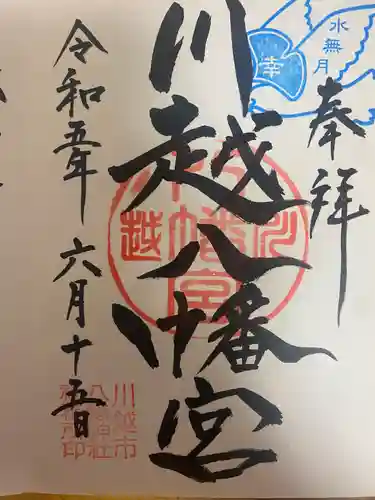 水無月
幸
奉拝
川越八幡宮
川越
八幡宮
令和五年 六月十五日
川越市